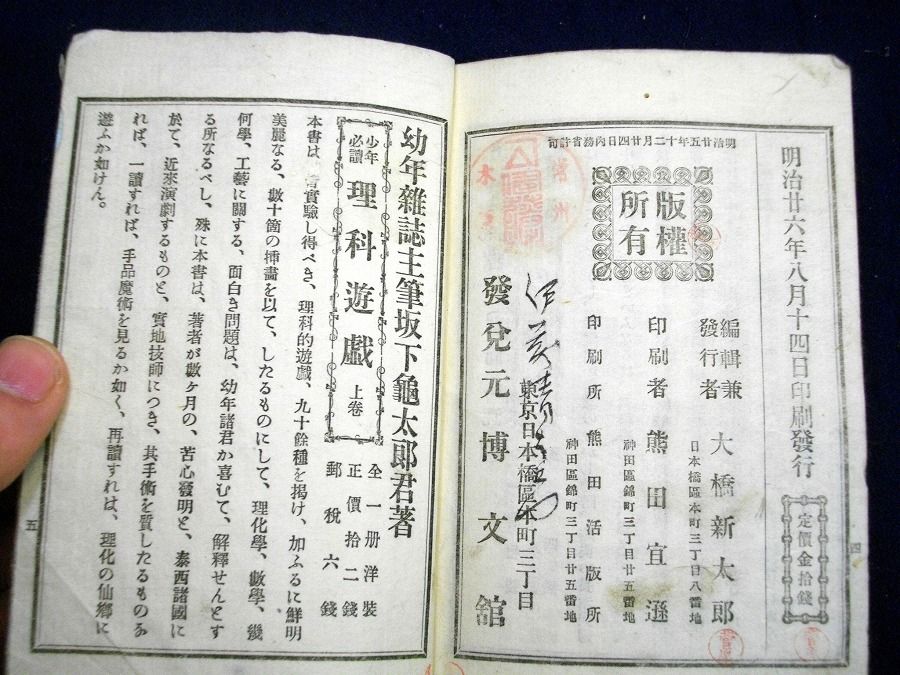 明治廿六年八月十四日印刷發行
定價金拾錢
明治廿五年十二月廿四日內務省許可
版權所有
編輯兼發行者
大橋新太郎
日本橋區本町三丁目八番地
印刷者
熊田宜遜
神田區錦町三丁目廿五番地
印刷所
熊田活版所
神田區錦町三丁目廿五番地
東京日本橋區本町三丁目
發兌元博文館
四
幼年雜誌主筆坂下龜太郎君著
少年必讀
理科遊戲
上卷
全一册洋裝
正價拾二錢
郵稅六錢
本書は、
實驗し得べき、理科的遊戲、九十餘種を揭け、加ふるに鮮明
美麗なる、數十箇の揷畫を以て、したるものにして、理化學、數學、幾
何學、工藝に關する、面白き問題は、幼年諸君か喜むて、解釋せんとす
る所なるべし、殊に本書は、著者が數ヶ月の、苦心發明と、泰西諸國に
於て、近來演劇するものと、實地技師につき、其手術を質したるものな
れば、一讀すれば、手品魔術を見るか如く、再讀すれは、理化の仙鄕に
遊ふか如けん。
五